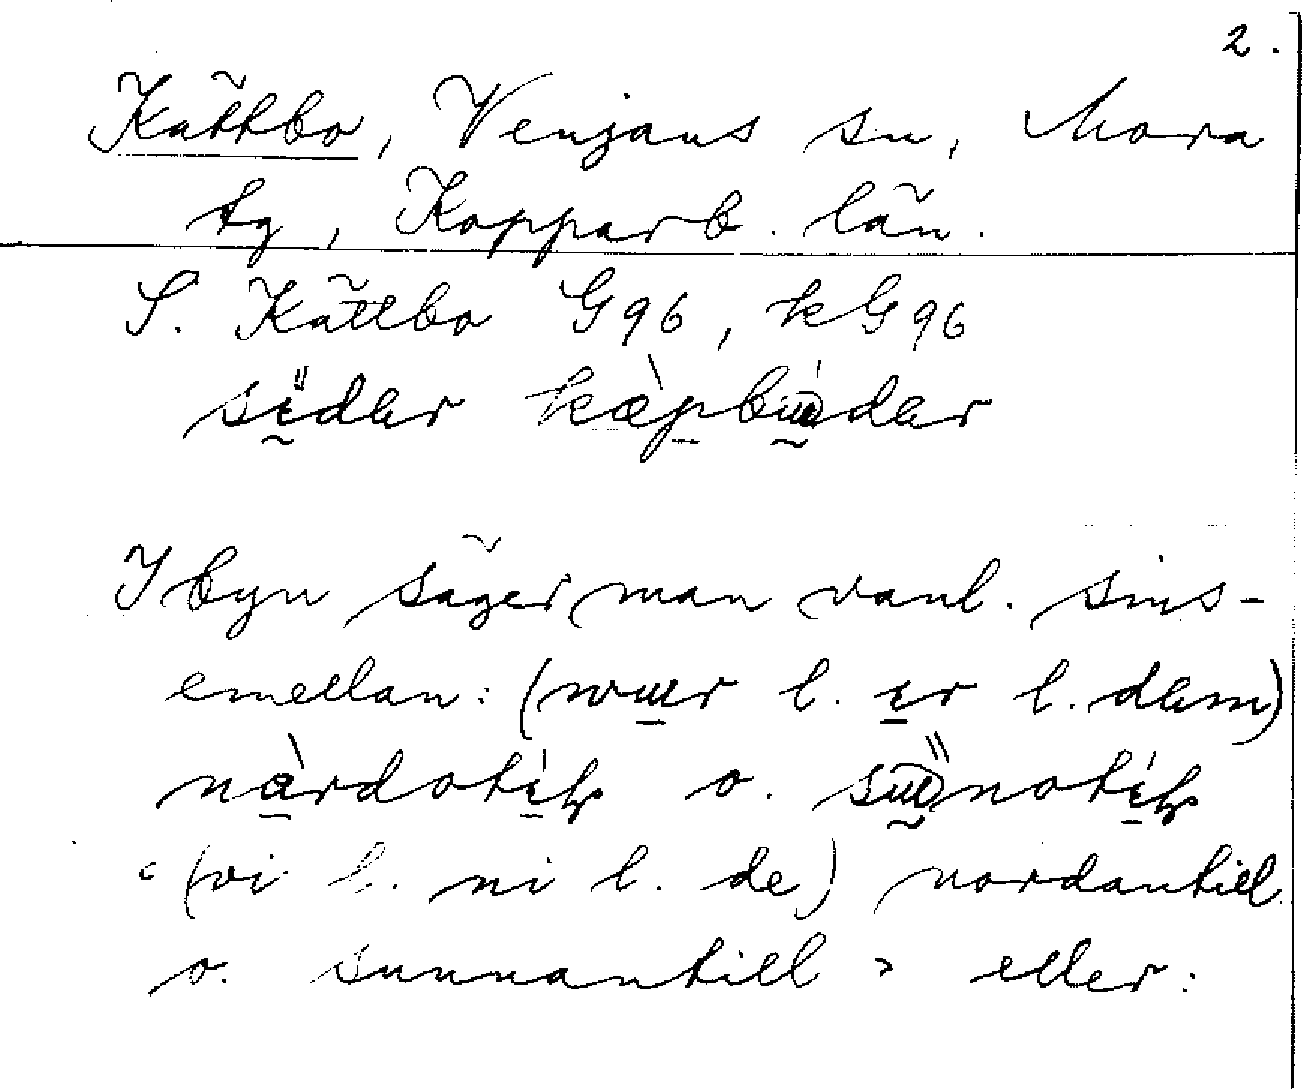 2.
Kättbo, Venjans sn, Mora
tg, Kopparb. län.
S. Kättbo G96, kG96
I byn säger man vanl. sins-
emellan: (wɯr l. ır l. dem)
nàrdotı́k o. notı́k
‹ (vi l. ni l. de) nordantill
o. sunnantill › eller: